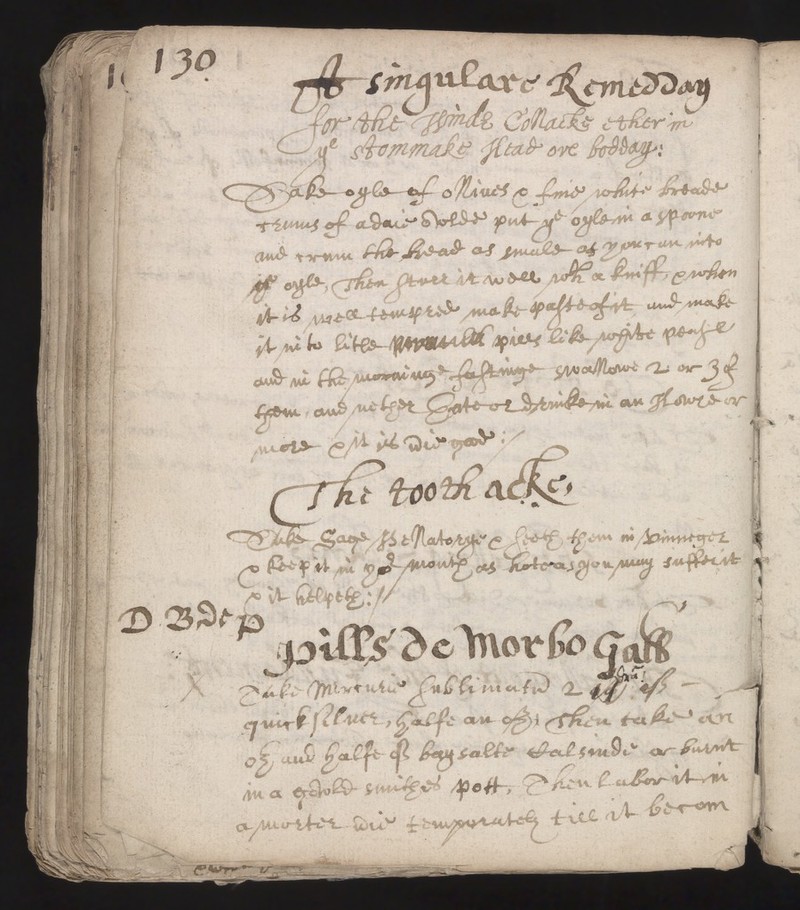 130
A singulare Remedday
for the Winds Collacke ether in
ye stommake Head ore bodday:
Take oyle of ollives & fine white breade
crums of a daie olde put ye oyle in a spoone
and crum the bread as smale as you can into
ye oyle, Then sturr it well wth a kniff, & when
it is well tempred make paste of it and make
it into litle pills like white peass
and in the morninge fastinge swallowe 2 or 3 of
them, and nether Eate or drinke in an Howre or
more & it is good :/
The tooth acke,
Take Sage & seeth them in vinneger
& keep it in yor mouth as hote as you may suffer it
& it helpeth ://
D B de P
pills de Morbo Gall
X Take Mercurie sublimatū 2
quicksilver, halfe an oz: Then take an
oz and halfe of bay salte Calsinde or burnt
in a goold smithes pott, Then labor it in
a morter temperately till it becom